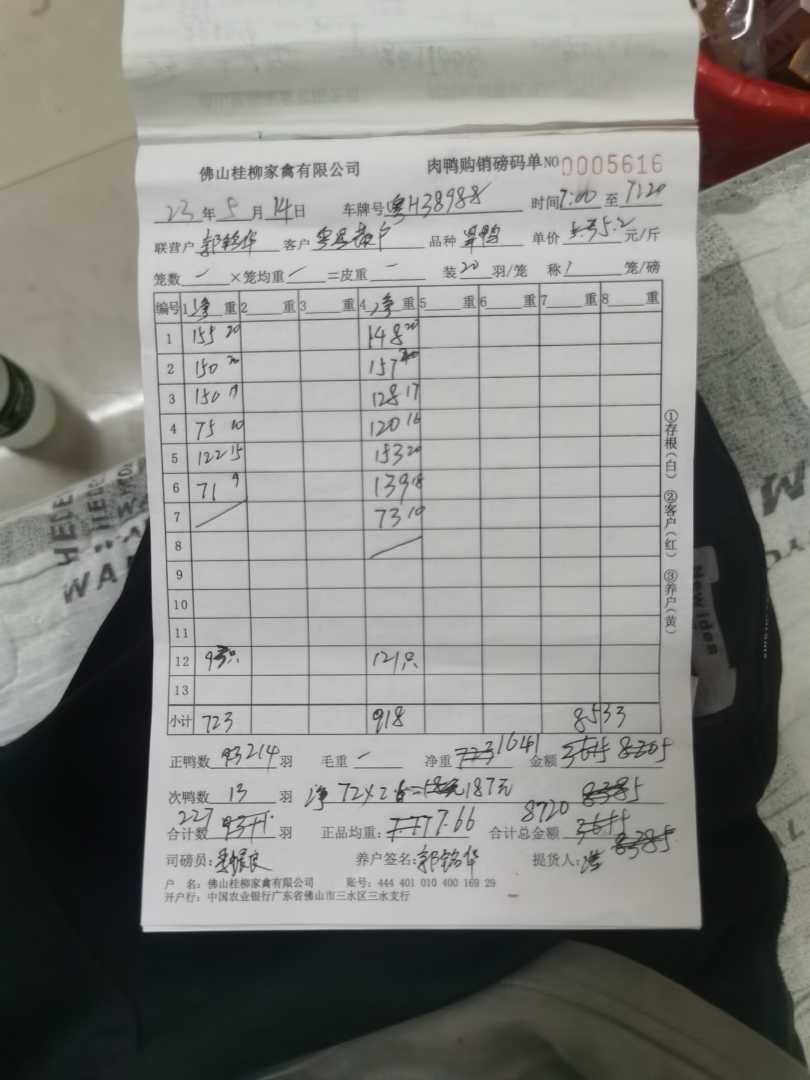 佛山桂柳家禽有限公司 肉鸭购销磅码单 NO 0005616
23年5月14日 车牌号 粤H38988 时间 7:00 至 7:20
联营户 郭铭华 客户 品种 单价 5.2 元/斤
笼数 一 ×笼均重 一 =皮重 一 装 20 羽/笼 称 1 笼/磅
编号 1 净 重 2 重 3 重 4 净 重 5 重 6 重 7 重 8 重
1 155 20 148 20
2 150 20 157 20
3 150 19 128 17
4 75 10 120 16
5 122 15 153 20
6 71 9 139 18
7 73 10
8
9
10
11
12 93只 121只
13
小计 723 918 8533
正鸭数 93 214 羽 毛重 一 净重 723 1641 金额
次鸭数 13 羽 净 72 187元 8385
227
合计数 羽 正品均重: 7.66 合计总金额 8720 8385
司磅员: 养户签名: 郭铭华 提货人:
户 名: 佛山桂柳家禽有限公司 账号: 444 401 010 400 169 29
开户行: 中国农业银行广东省佛山市三水区三水支行
①存根(白) ②客户(红) ③养户(黄)
New idea